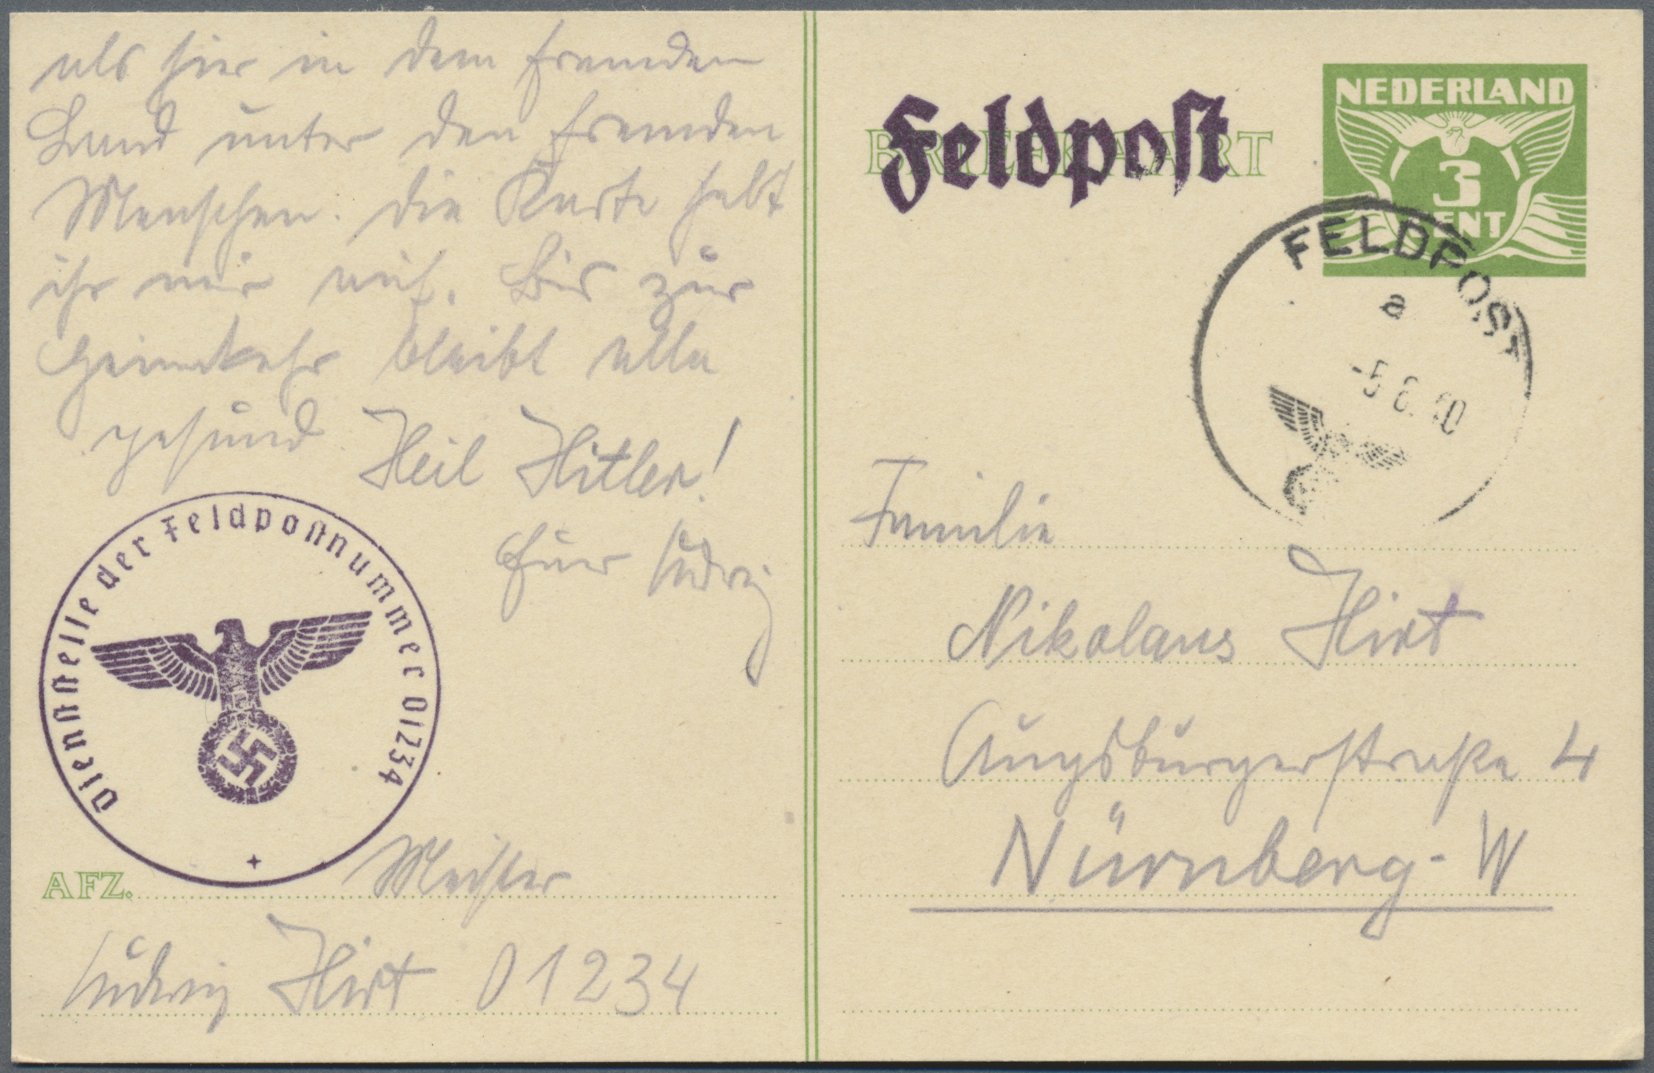 als hier in dem fremden
Land unter den fremden
Menschen. Die Karte hebt
ihr mir auf. Bis zur
Heimkehr bleibt alle
gesund Heil Hitler!
Euer Ludwig
Dienststelle der Feldpostnummer 01234
AFZ. Meister
Ludwig Hirt 01234
BRIEFKAART
Feldpost
NEDERLAND
3
CENT
FELDPOST
a
-5.6.40
Familie
Nikolaus Hirt
Augsburgerstraße 4
Nürnberg-W